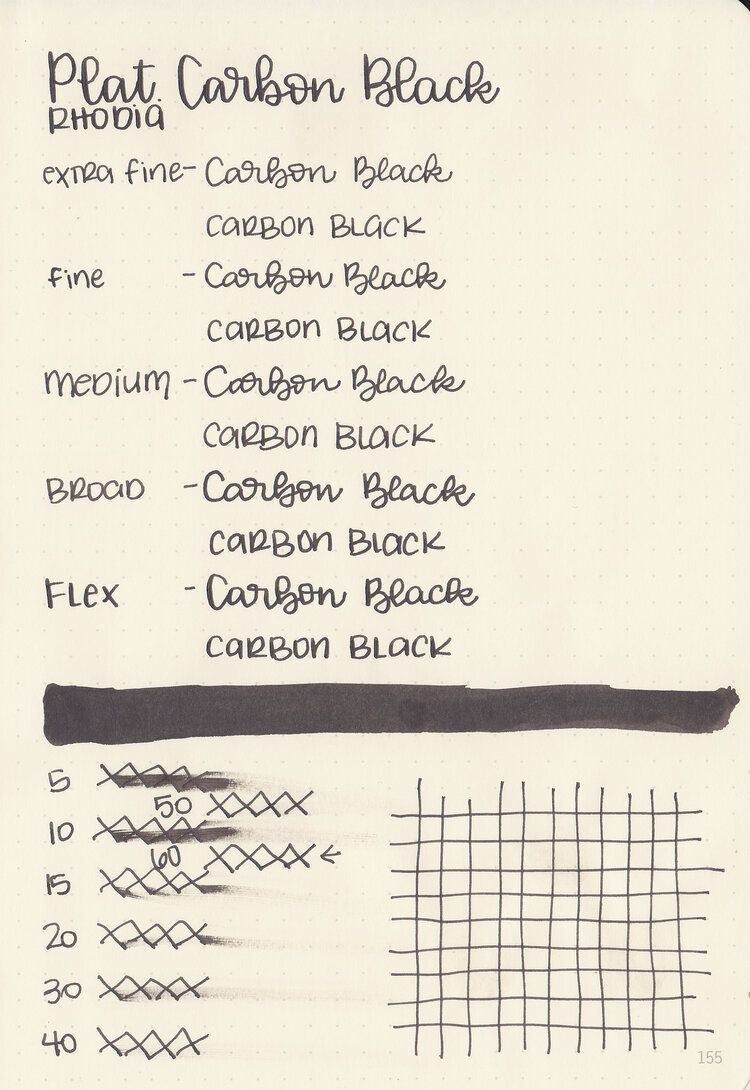 Plat. Carbon Black
RHODIA
extra fine - Carbon Black
CARBON BLACK
fine - Carbon Black
CARBON BLACK
medium - Carbon Black
CARBON BLACK
BROAD - Carbon Black
CARBON BLACK
FLex - Carbon Black
CARBON BLACK
5
50
10
60 ←
15
20
30
40
155